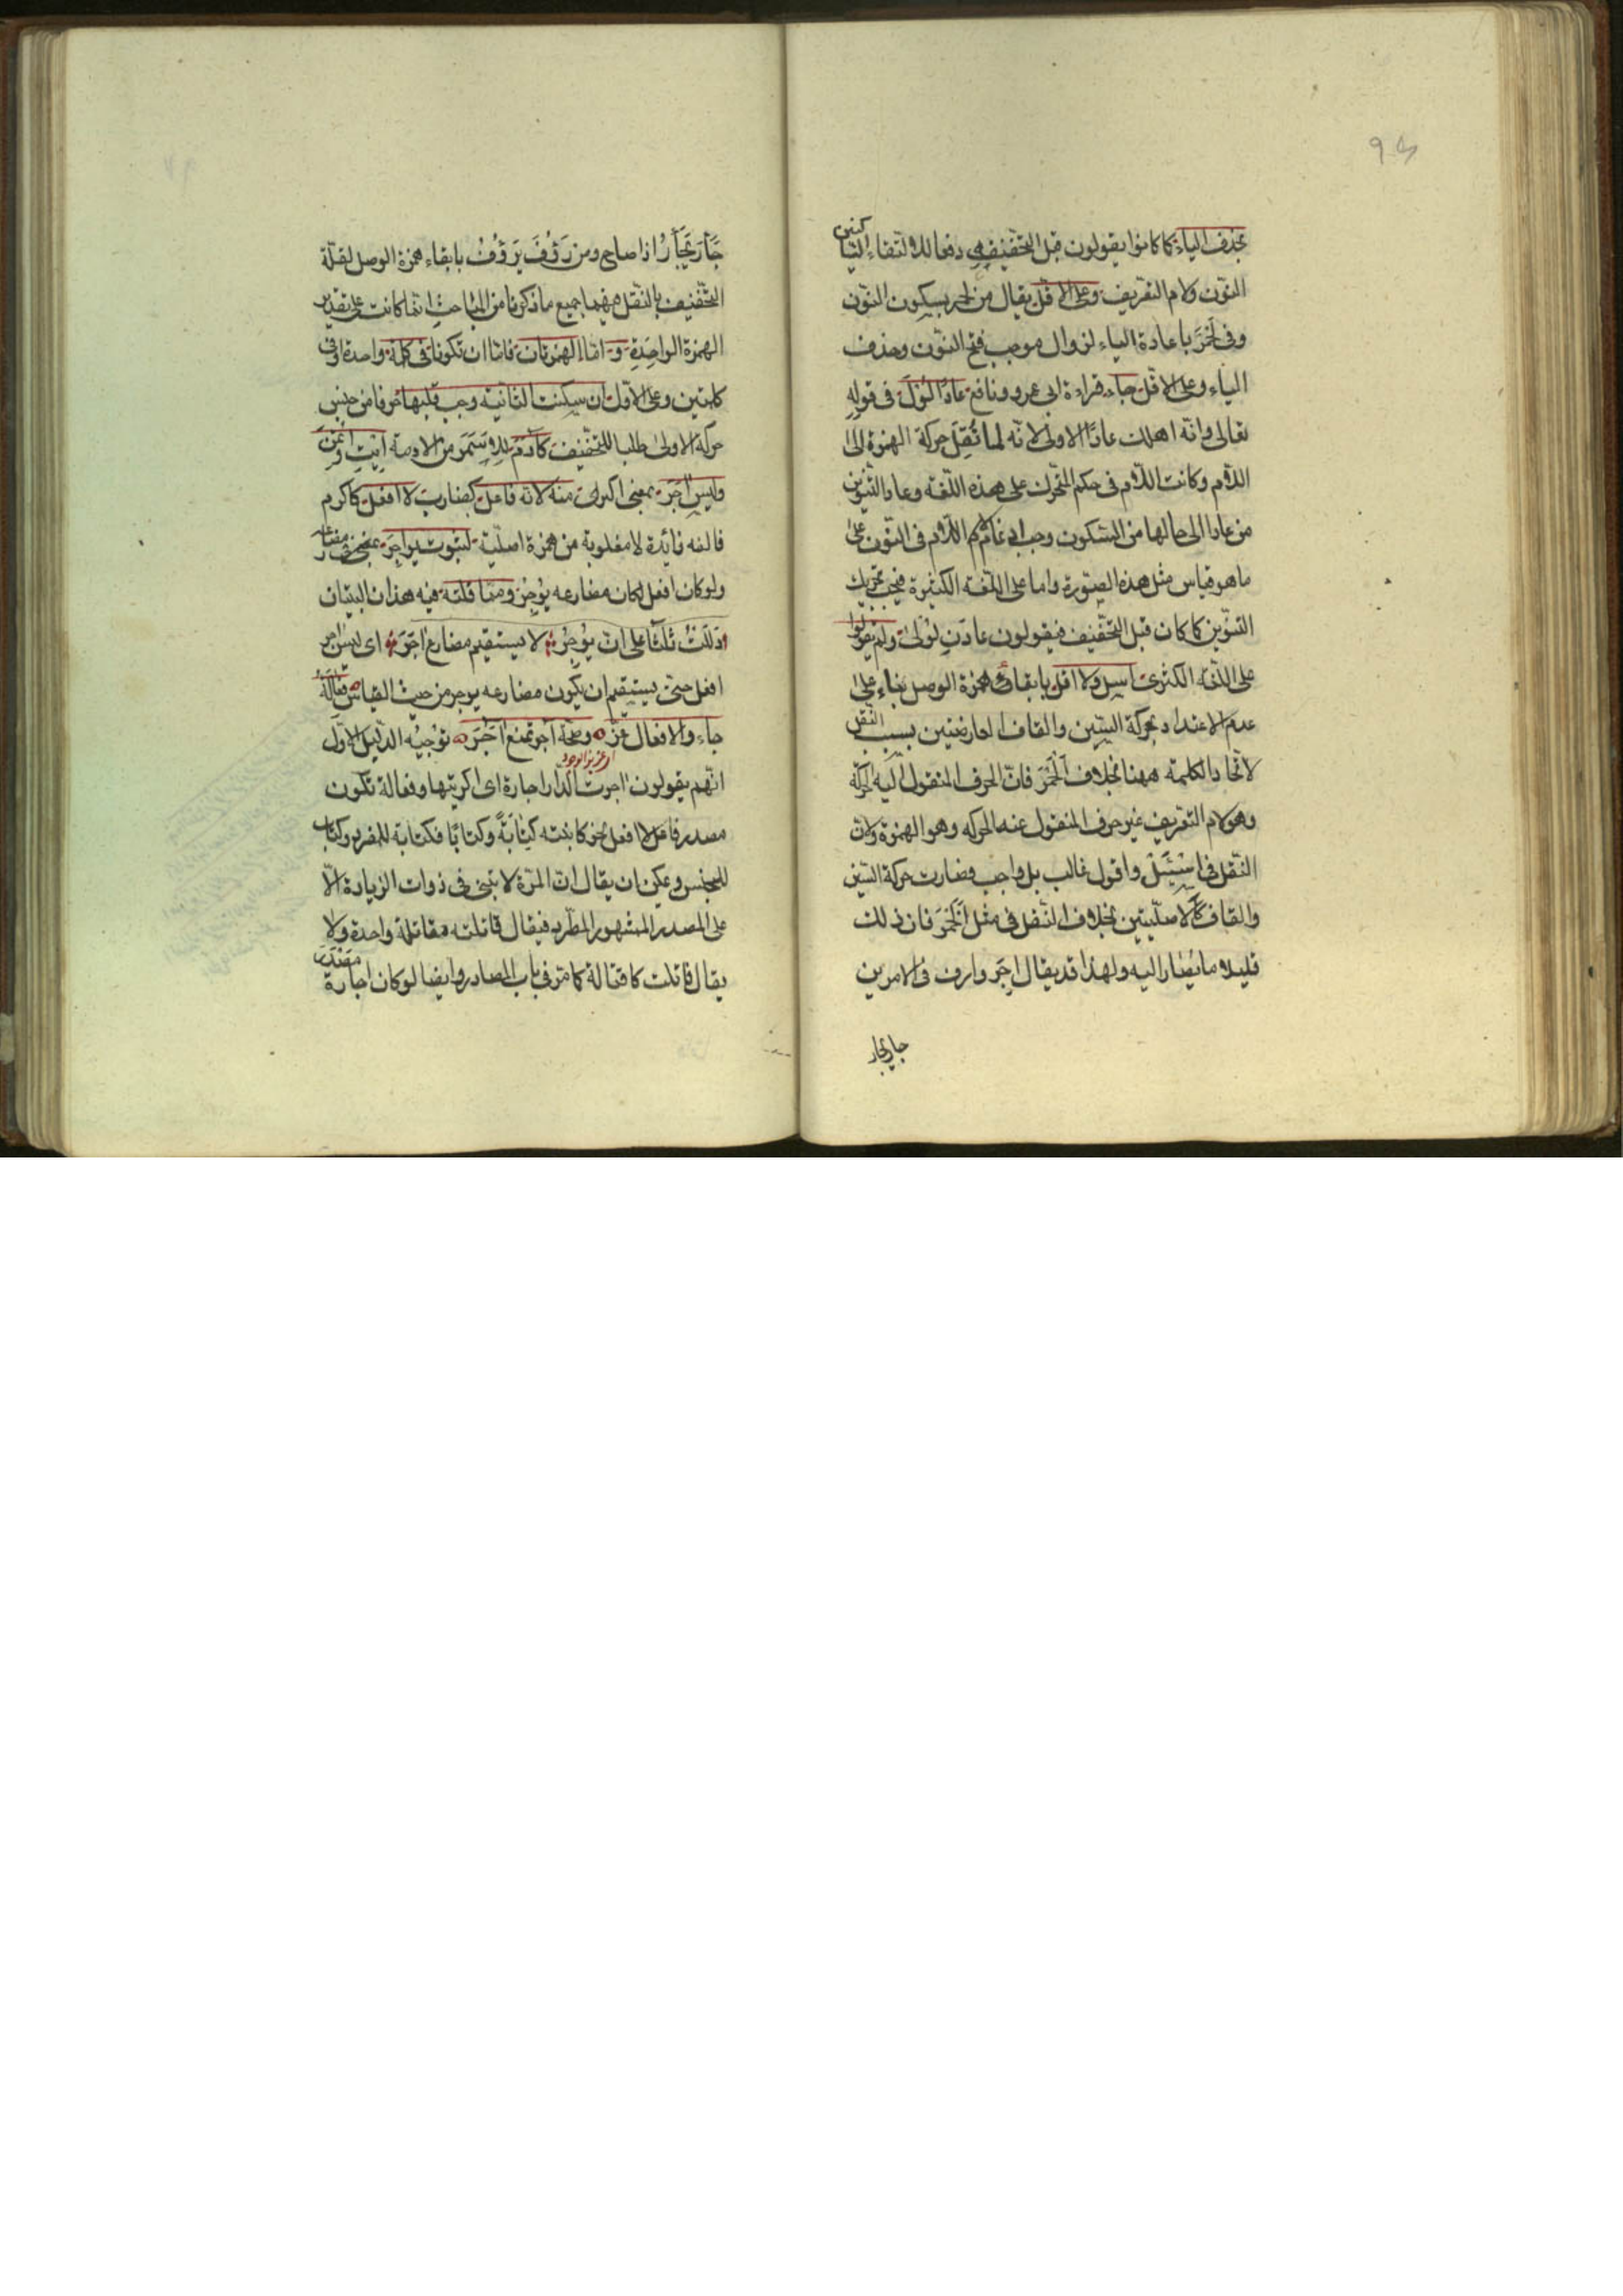 بحذف الياء كما كانوا يقولون قبل التخفيف هي دفعا لالتقاء الساكنين
النون ولام التعريف وعلى الاقل يقال من لحمر بسكون النون
وفى لحمر باعادة الياء لزوال موجب فتح النون وحذف
الياء وعلى الاقل جاء قراءة ابى عمرو ونافع عادا لولى فى قوله
تعالى وانه اهلك عادا الاولى لانه لما نقل حركة الهمزة الى
اللام وكانت اللام فى حكم المتحرك على هذه اللغة وعاد التنوين
من عادا الى حالها من السكون وجب ادغام اللام فى النون على
ما هو قياس مثل هذه الصورة واما على اللغة الكثيرة فيجب تحريك
التنوين كما كان قبل التخفيف فيقولون عادن لولى ولم يقولوا
على اللغة الكثرى اسل ولا اقل بابقاء همزة الوصل بناء على
عدم الاعتداد بحركة السين والقاف العارضتين بسبب النقل
لاتحاد الكلمة ههنا بخلاف الحمر فان الحرف المنقول اليه الحركة
وهو لام التعريف غير حرف المنقول عنه الحركة وهو الهمزة ولان
النقل فى اسئل واقول غالب بل واجب فصارت حركة السين
والقاف كالاصليتين بخلاف النقل فى مثل الحمر فان ذلك
قليلا ما يصار اليه ولهذا قد يقال اجر وارف فى الامرين
جار يجار
جأر يجأر اذا صاح ومن رؤف يرؤف بابقاء همزة الوصل لقلة
التخفيف بالنقل فيهما جميع ما ذكرنا من المباحث انما كانت على تقدير
الهمزة الواحدة و اما الهمزتان فاما ان تكونا فى كلمة واحدة او فى
كلمتين وعلى الاول ان سكنت الثانية وجب قلبها حرفا من جنس
حركة الاولى طلبا للتخفيف كآدم من الادمة ايت
وليس آجر بمعنى اكرى منه لانه فاعل كضارب لا افعل كاكرم
فالفه زائدة لا مقلوبة من همزة اصلية لثبوت يواجر فى مضارعه
ولو كان افعل لكان مضارعه يوجر ومما قلته فيه هذان البيتان
دللت ثلثا على ان يوجر لا يستقيم مضارع آجر اى ليس آجر
افعل حتى يستقيم ان يكون مضارعه يوجر من حيث القياس فعالة
جاء والافعال عز وصحة آجر تمنع آجر توجيه الدليل الاول
اى عزيز الوجود
انهم يقولون آجرت الدار اجارة اى اكريتها وفعالة تكون
مصدر فاعل لا افعل نحو كاتبته كتابة وكتابا فكتابة للمفرد وكتاب
للجنس ويمكن ان يقال ان المرة لا تبنى فى ذوات الزيادة الا
على المصدر المشهور المطرد فيقال قاتلته مقاتلة واحدة ولا
يقال قاتلت كا قتالة كما مر فى باب المصادر وايضا لو كان اجارة مصدر